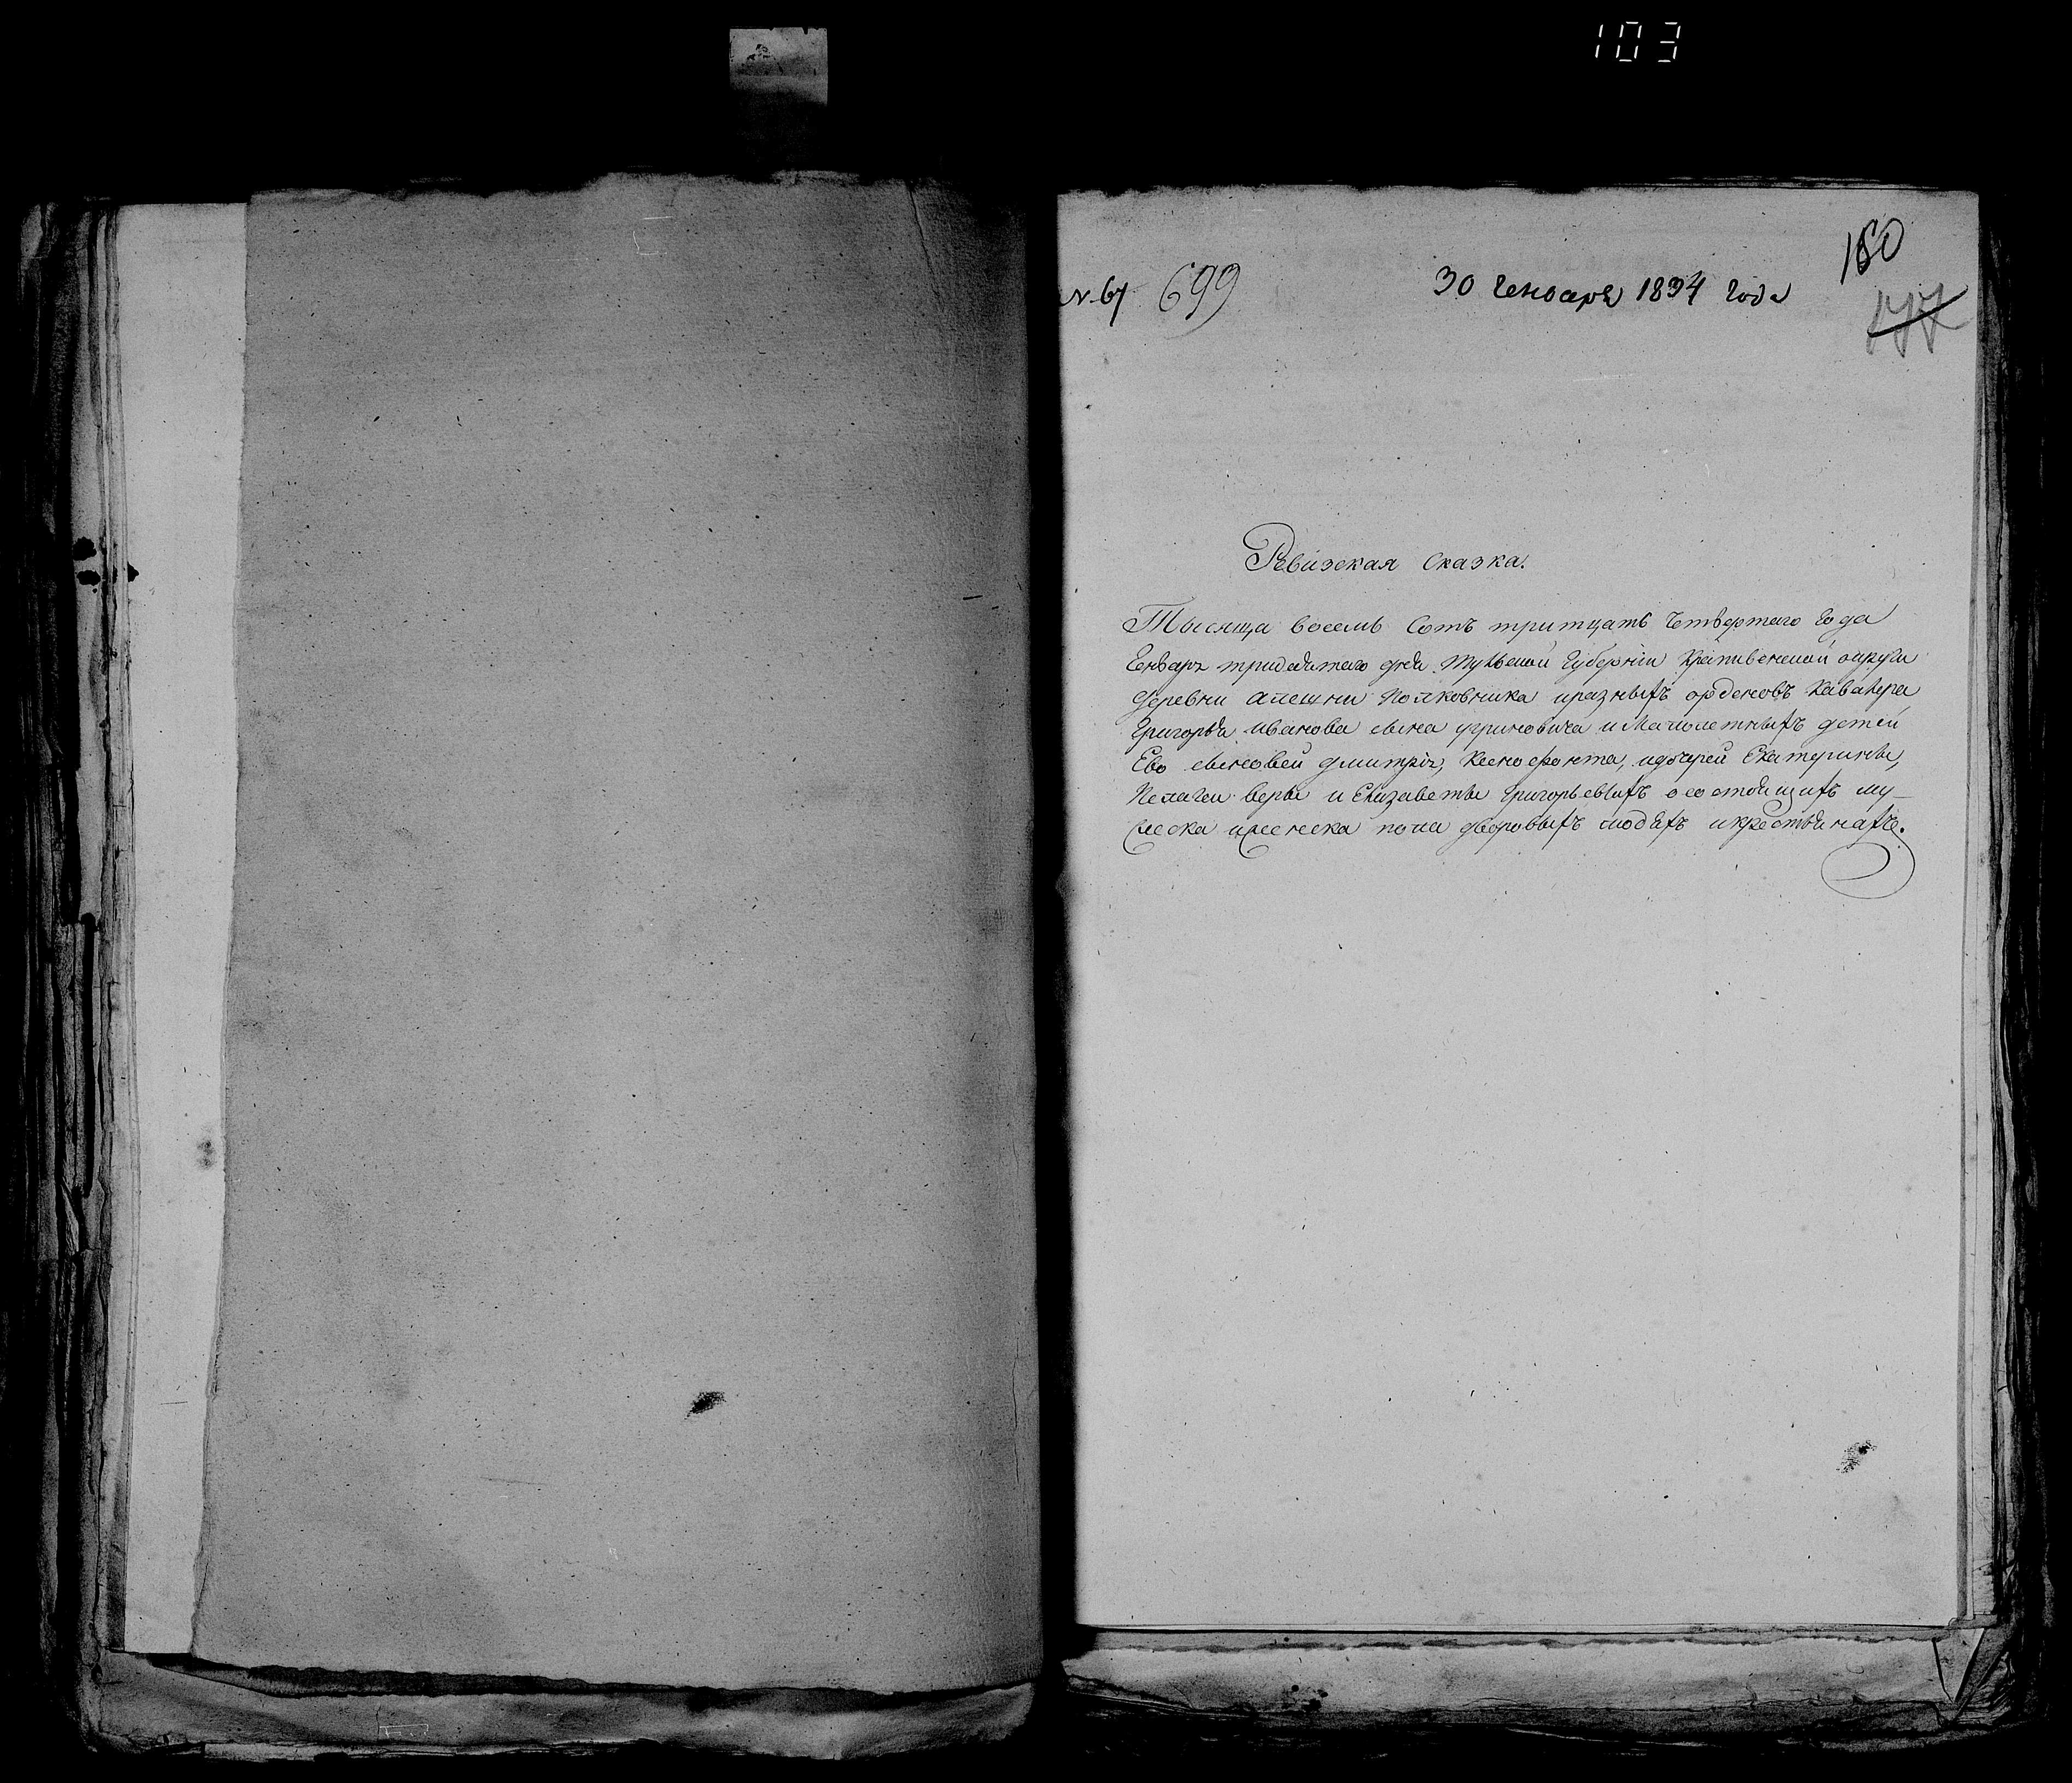 103
180
N. 67 699 30 Генваря 1834 года
177
Ревизская Сказка.
Тысяща восемь Сотъ тритцать четвертаго Года
Генваря тридедятаго дня Тульской Губернии Крапивенской округи
деревни Апешни Полковника и разныхъ орденовъ Кавалера
Григорья Иванова сына угриновича и Малолетныхъ детей
Ево сыновей дмитрiя, Ксенофонта, и дочерей Екатерины,
Пелагеи веры и Елизаветы Григорьевыхъ о состоящихъ му-
жеска и женска пола дворовыхъ людяхъ и крестьянахъ.